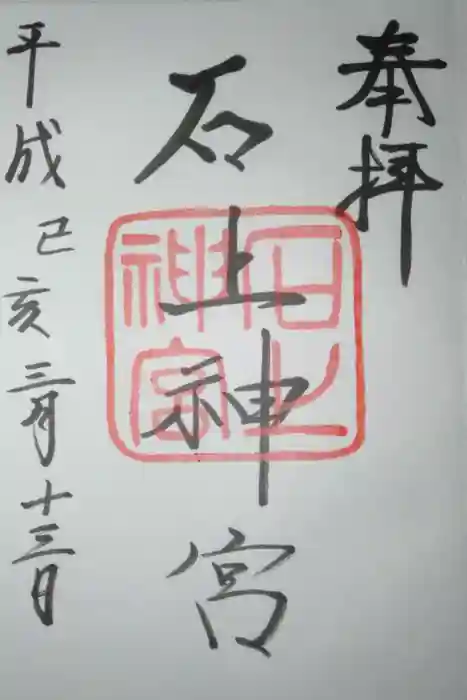 奉拝
石上神宮
石上
神宮
平成己亥三月十三日